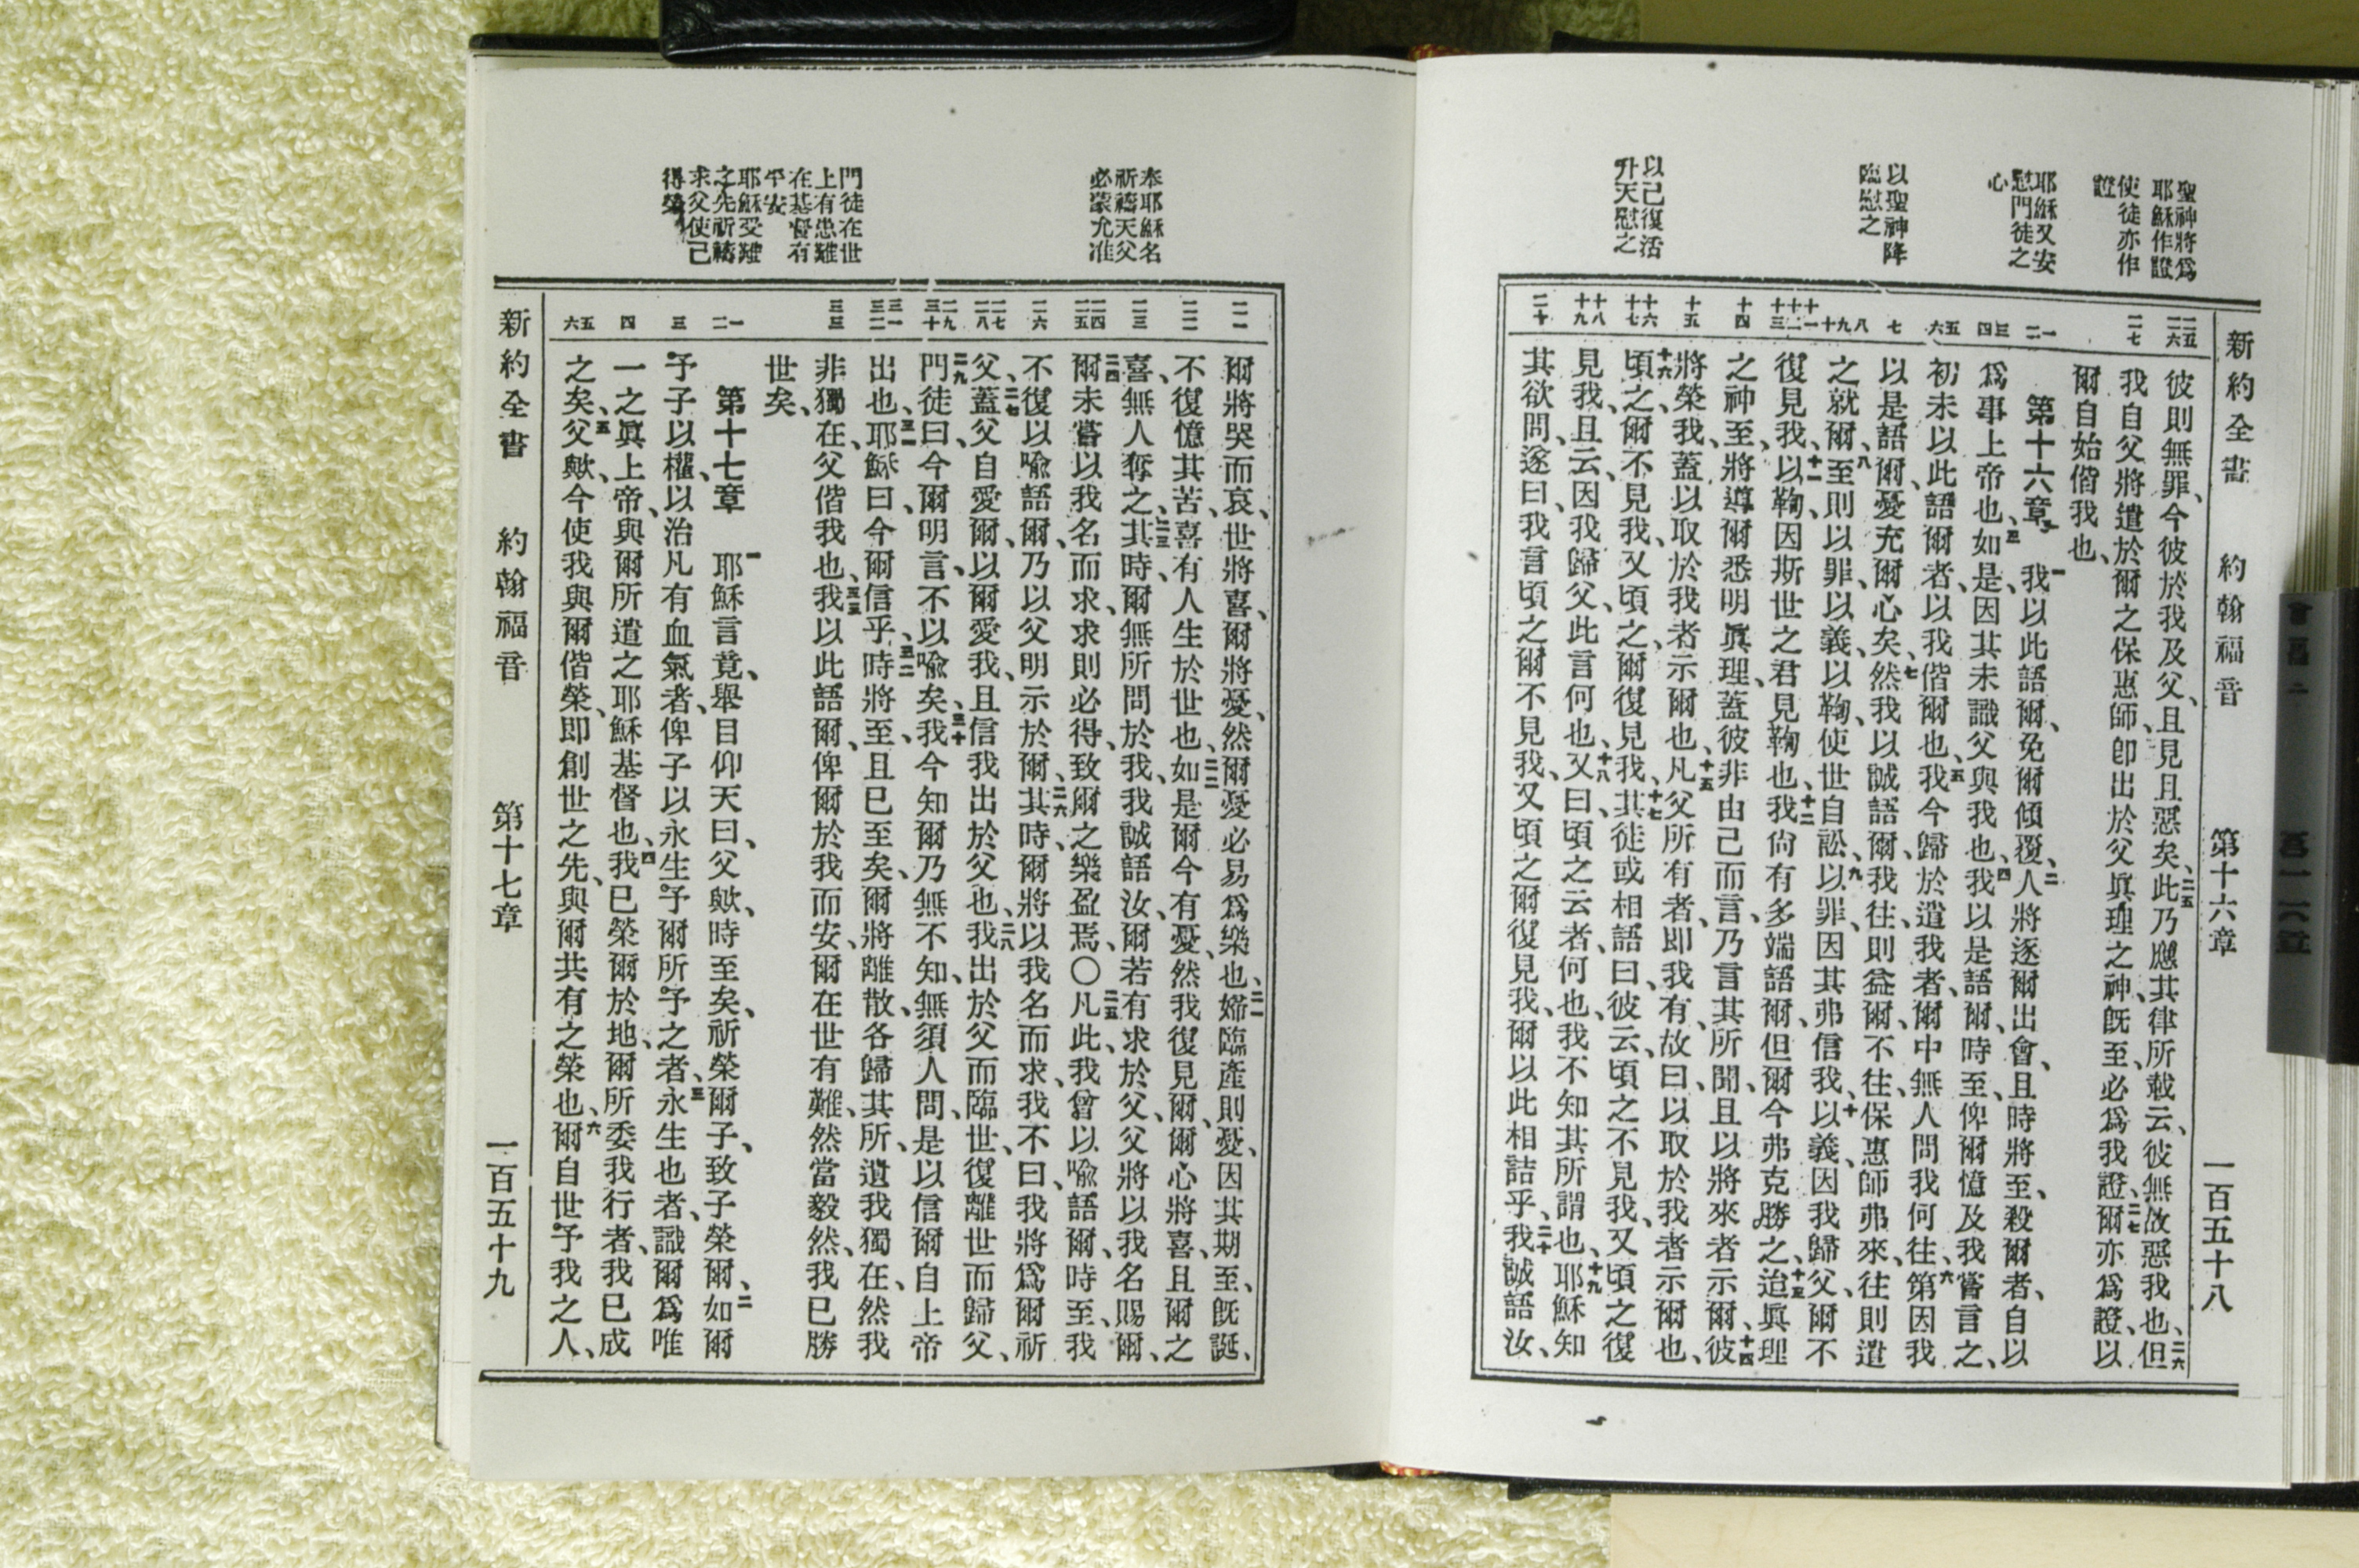 新約全書　約翰福音　第十六章　一百五十八
聖神將爲
耶穌作證
使徒亦作
證
耶穌又安
慰門徒之
心
以聖神降
臨慰之
以己復活
升天慰之
二五
二六
二七
一
二
三
四
五
六
七
八
九
十
十一
十二
十三
十四
十五
十六
十七
十八
十九
二十
彼則無罪、今彼於我及父、且見且惡矣、二五此乃應其律所載云、彼無故惡我也、二六但
我自父將遣於爾之保惠師、卽出於父眞理之神、旣至、必爲我證、二七爾亦爲證、以
爾自始偕我也、
第十六章　一我以此語爾、免爾傾覆、二人將逐爾出會、且時將至、殺爾者、自以
爲事上帝也、三如是、因其未識父與我也、四我以是語爾、時至、俾爾憶及我嘗言之、
初未以此語爾者、以我偕爾也、五我今歸於遣我者、爾中無人問我何往、六第因我
以是語爾、憂充爾心矣、七然我以誠語爾、我往、則益爾、不往、保惠師弗來、往則遣
之就爾、八至則以罪、以義、以鞫、使世自訟、九以罪、因其弗信我、十以義、因我歸父、爾不
復見我、十一以鞫、因斯世之君見鞫也、十二我尙有多端語爾、但爾今弗克勝之、十三迨眞理
之神至、將導爾悉明眞理、蓋彼非由己而言、乃言其所聞、且以將來者示爾、十四彼
將榮我、蓋以取於我者示爾也、十五凡父所有者、即我有、故曰、以取於我者示爾也、
十六頃之、爾不見我、又頃之、爾復見我、十七其徒或相語曰、彼云、頃之不見我、又頃之復
見我、且云、因我歸父、此言何也、十八又曰、頃之云者、何也、我不知其所謂也、十九耶穌知
其欲問、遂曰、我言頃之爾不見我、又頃之爾復見我、爾以此相詰乎、二十我誠語汝、
奉耶穌名
祈禱天父
必蒙允准
門徒在世
上有患難
在基督有
平安
耶穌受難
之先祈禱
求父使己
得榮
二一
二二
二三
二四
二五
二六
二七
二八
二九
三十
三一
三二
三三
一
二
三
四
五
六
爾將哭而哀、世將喜、爾將憂、然爾憂必易爲樂也、二一婦臨產則憂、因其期至、旣誕、
不復憶其苦、喜有人生於世也、二二如是爾今有憂、然我復見爾、爾心將喜、且爾之
喜、無人奪之、二三其時、爾無所問於我、我誠語汝、爾若有求於父、父將以我名賜爾、
二四爾未嘗以我名而求、求則必得、致爾之樂盈焉、〇二五凡此、我曾以喩語爾、時至、我
不復以喩語爾、乃以父明示於爾、二六其時、爾將以我名而求、我不曰、我將爲爾祈
父、二七蓋父自愛爾、以爾愛我、且信我出於父也、二八我出於父而臨世、復離世而歸父、
二九門徒曰、今爾明言、不以喩矣、三十我今知爾乃無不知、無須人問、是以信爾自上帝
出也、三一耶穌曰、今爾信乎、三二時將至、且已至矣、爾將離散、各歸其所、遺我獨在、然我
非獨在、父偕我也、三三我以此語爾、俾爾於我而安、爾在世有難、然當毅然、我已勝
世矣、
第十七章　一耶穌言竟、舉目仰天曰、父歟、時至矣、祈榮爾子、致子榮爾、二如爾
予子以權、以治凡有血氣者、俾子以永生予爾所予之者、三永生也者、識爾爲唯
一之眞上帝、與爾所遣之耶穌基督也、四我已榮爾於地、爾所委我行者、我已成
之矣、五父歟、今使我與爾偕榮、即創世之先、與爾共有之榮也、六爾自世予我之人、
新約全書　約翰福音　第十七章　一百五十九